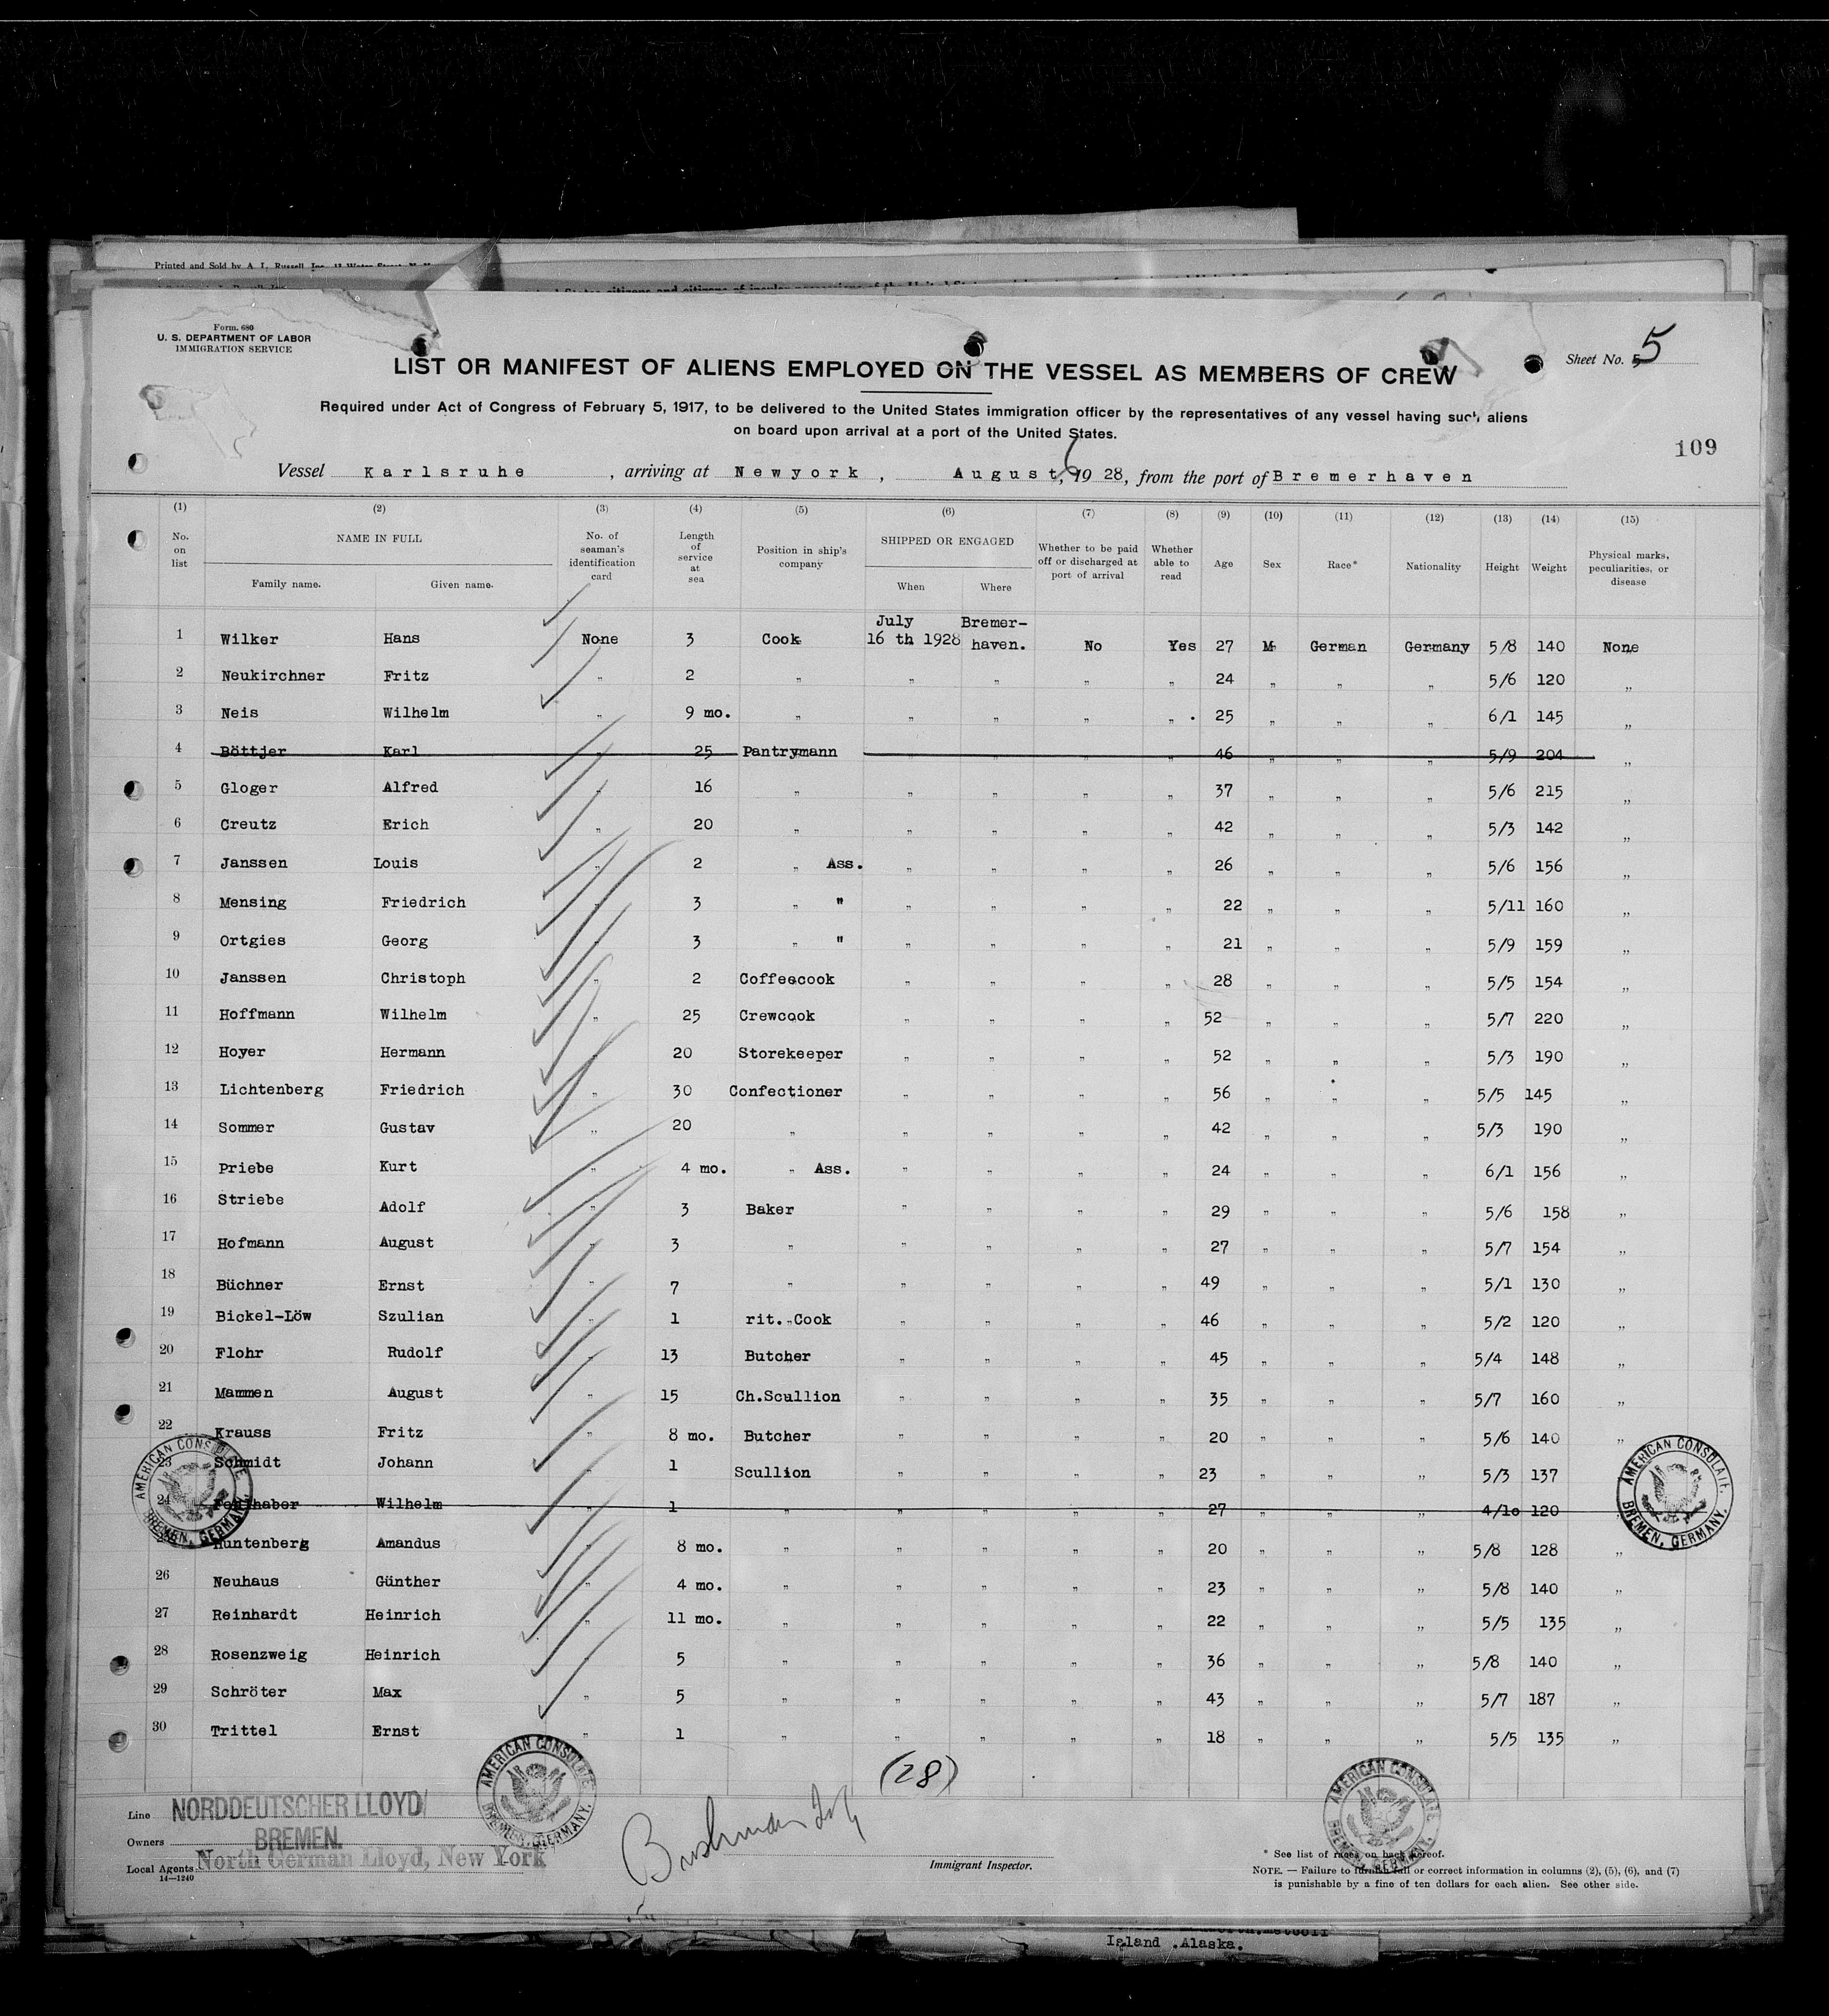 Printed and Sold by A. L. Russell, Inc.
Form. 680
U. S. DEPARTMENT OF LABOR
IMMIGRATION SERVICE
Sheet No. 5
5
LIST OR MANIFEST OF ALIENS EMPLOYED ON THE VESSEL AS MEMBERS OF CREW
Required under Act of Congress of February 5, 1917, to be delivered to the United States immigration officer by the representatives of any vessel having such aliens
on board upon arrival at a port of the United States.
109
Vessel Karlsruhe, arriving at Newyork, August 6, 1928, from the port of Bremerhaven
(1) (2) (3) (4) (5) (6) (7) (8) (9) (10) (11) (12) (13) (14) (15)
No. on list
NAME IN FULL
Family name. Given name.
No. of seaman's identification card
Length of service at sea
Position in ship's company
SHIPPED OR ENGAGED
When Where
Whether to be paid off or discharged at port of arrival
Whether able to read
Age
Sex
Race*
Nationality
Height
Weight
Physical marks, peculiarities, or disease
1 Wilker Hans None 3 Cook July 16 th 1928 Bremer-haven. No Yes 27 M German Germany 5/8 140 None
2 Neukirchner Fritz " 2 " " " " " 24 " " " 5/6 120 "
3 Neis Wilhelm " 9 mo. " " " " " 25 " " " 6/1 145 "
4 Böttjer Karl " 25 Pantrymann " " " " 46 " " " 5/9 204 "
5 Gloger Alfred " 16 " " " " " 37 " " " 5/6 215 "
6 Creutz Erich " 20 " " " " " 42 " " " 5/3 142 "
7 Janssen Louis " 2 " Ass. " " " " 26 " " " 5/6 156 "
8 Mensing Friedrich " 3 " " " " " " 22 " " " 5/11 160 "
9 Ortgies Georg " 3 " " " " " " 21 " " " 5/9 159 "
10 Janssen Christoph " 2 Coffeecook " " " " 28 " " " 5/5 154 "
11 Hoffmann Wilhelm " 25 Crewcook " " " " 52 " " " 5/7 220 "
12 Hoyer Hermann " 20 Storekeeper " " " " 52 " " " 5/3 190 "
13 Lichtenberg Friedrich " 30 Confectioner " " " " 56 " " " 5/5 145 "
14 Sommer Gustav " 20 " " " " " 42 " " " 5/3 190 "
15 Priebe Kurt " 4 mo. " Ass. " " " " 24 " " " 6/1 156 "
16 Striebe Adolf " 3 Baker " " " " 29 " " " 5/6 158 "
17 Hofmann August " 3 " " " " " 27 " " " 5/7 154 "
18 Büchner Ernst " 7 " " " " " 49 " " " 5/1 130 "
19 Bickel-Löw Szulian " 1 rit. Cook " " " " 46 " " " 5/2 120 "
20 Flohr Rudolf " 13 Butcher " " " " 45 " " " 5/4 148 "
21 Mammen August " 15 Ch.Scullion " " " " 35 " " " 5/7 160 "
22 Krauss Fritz " 8 mo. Butcher " " " " 20 " " " 5/6 140 "
23 Schmidt Johann " 1 Scullion " " " " 23 " " " 5/3 137
24 Wilhelm " 1 " " " " " 27 " " " 4/10 120
Huntenberg Amandus " 8 mo. " " " " " 20 " " " 5/8 128 "
26 Neuhaus Günther " 4 mo. " " " " " 23 " " " 5/8 140 "
27 Reinhardt Heinrich " 11 mo. " " " " " 22 " " " 5/5 135 "
28 Rosenzweig Heinrich " 5 " " " " " 36 " " " 5/8 140 "
29 Schröter Max " 5 " " " " " 43 " " " 5/7 187 "
30 Trittel Ernst " 1 " " " " " 18 " " " 5/5 135 "
AMERICAN CONSULATE BREMEN, GERMANY.
AMERICAN CONSULATE BREMEN, GERMANY.
AMERICAN CONSULATE BREMEN, GERMANY.
AMERICAN CONSULATE BREMEN, GERMANY.
(28)
Line NORDDEUTSCHER LLOYD
Owners BREMEN.
Local Agents North German Lloyd, New York
14—1240
Immigrant Inspector.
* See list of races on back hereof.
NOTE. — Failure to furnish full or correct information in columns (2), (5), (6), and (7)
is punishable by a fine of ten dollars for each alien. See other side.
Island .Alaska.